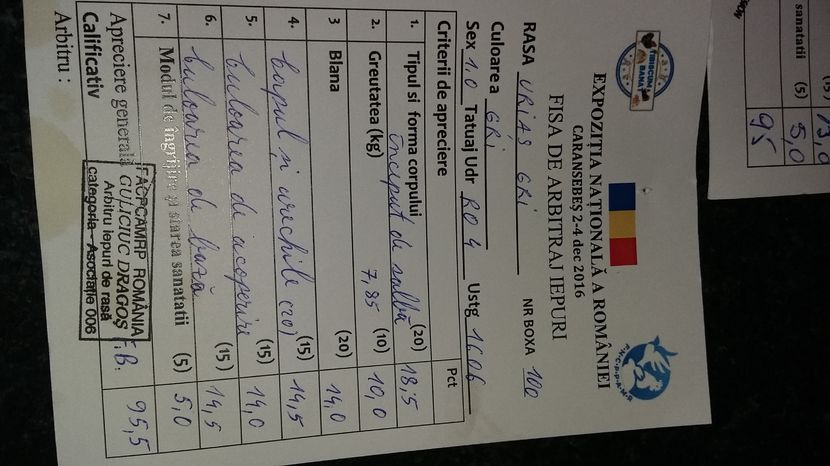 EXPOZIȚIA NAȚIONALĂ A ROMÂNIEI
CARANSEBEȘ 2-4 dec 2016
FISA DE ARBITRAJ IEPURI
RASA URIAȘ GRI NR BOXA 102
Culoarea GRI
Sex 1,0 Tatuaj Udr RO 4 Ustg 16.06
Criterii de apreciere Pct
1. Tipul si forma corpului (20) 18,5
început de salbă
2. Greutatea (kg) 7,85 (10) 10,0
3 Blana (20) 14,0
4. Corpul și urechile (20) (15) 14,5
5. Culoarea de acoperire (15) 14,0
6. Culoarea de bază (15) 14,5
7. Modul de îngrijire și starea sanatatii (5) 5,0
Apreciere generală F.B. 95,5
Calificativ
Arbitru :
FACPCAMRP ROMÂNIA
GULICIUC DRAGOȘ
Arbitru iepuri de rasă
categoria - Asociație 006
(15)
sanatatii (5) 5,0
95